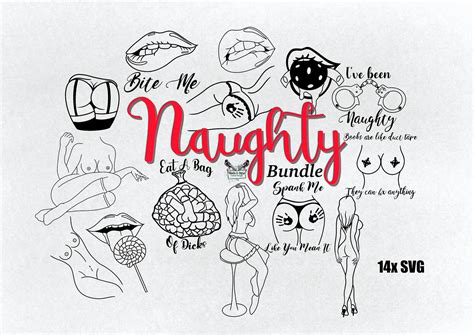 Bite Me
I've been
Naughty
Naughty
Boobs are like duct tape
Eat A Bag
Bundle
Spank Me
They can fix anything
Of Dicks
Like You Mean It
14x SVG